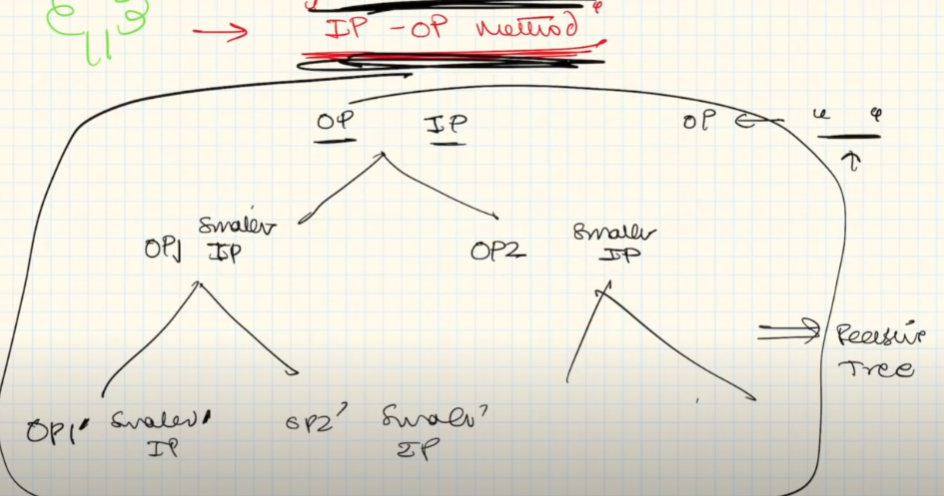 → IP - OP method
OP IP
OP ← " "
↑
OP1 Smaller IP
OP2 Smaller IP
⇒ Recursive Tree
OP1' Smaller' IP
OP2' Smaller' IP